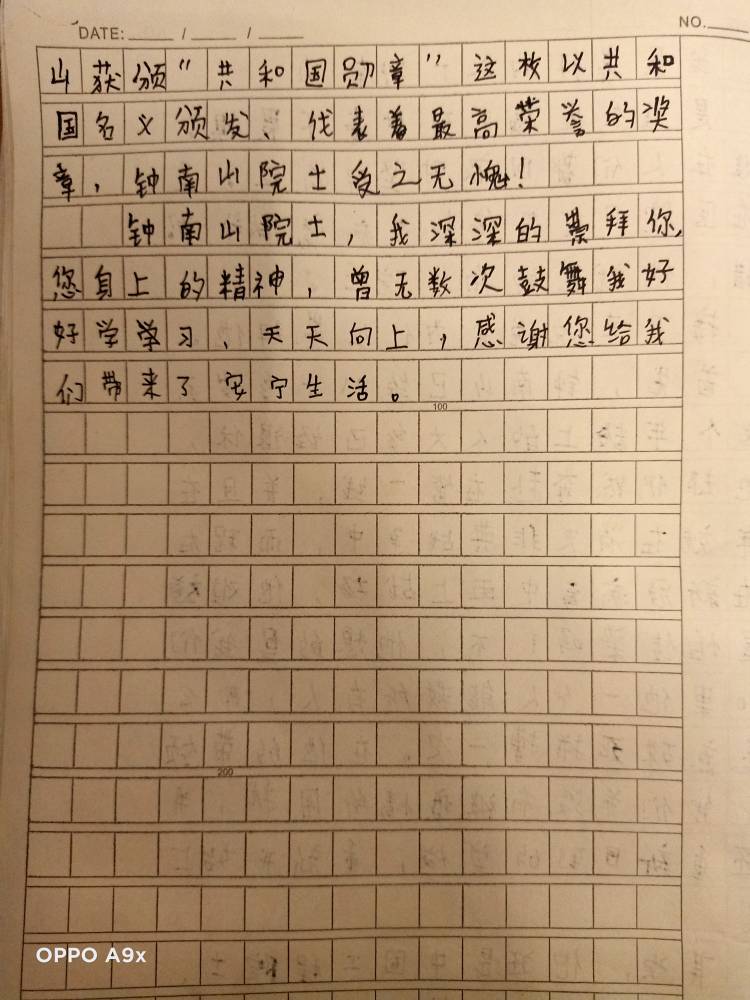 DATE: ____ / ____ / ____ NO.____
山获颁“共和国勋章”这枚以共和
国名义颁发、代表着最高荣誉的奖
章,钟南山院士受之无愧!
钟南山院士,我深深的崇拜你,
您身上的精神,曾无数次鼓舞我好
好学学习、天天向上,感谢您给我
们带来了安宁生活。
100
200
OPPO A9x